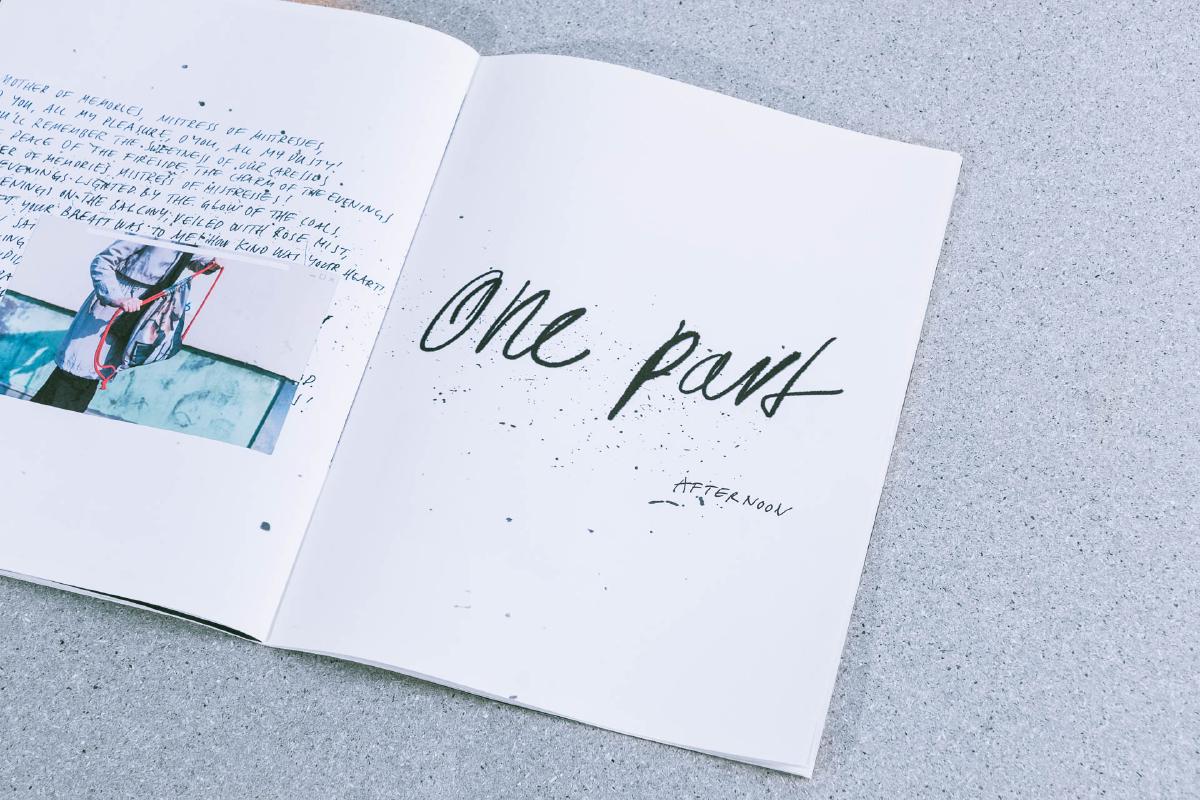 MOTHER OF MEMORIES, MISTRESS OF MISTRESSES,
YOU, ALL MY PLEASURE, O YOU, ALL MY DUTY!
YOU'LL REMEMBER THE SWEETNESS OF OUR CARESSES
PEACE OF THE FIRESIDE, THE CHARM OF THE EVENINGS
OF MEMORIES MISTRESS OF MISTRESSES!
EVENINGS LIGHTED BY THE GLOW OF THE COALS,
ON THE BALCONY, VEILED WITH ROSE MIST,
YOUR BREAST WAS TO ME! HOW KIND WAS YOUR HEART!
SAI
One part
AFTERNOON